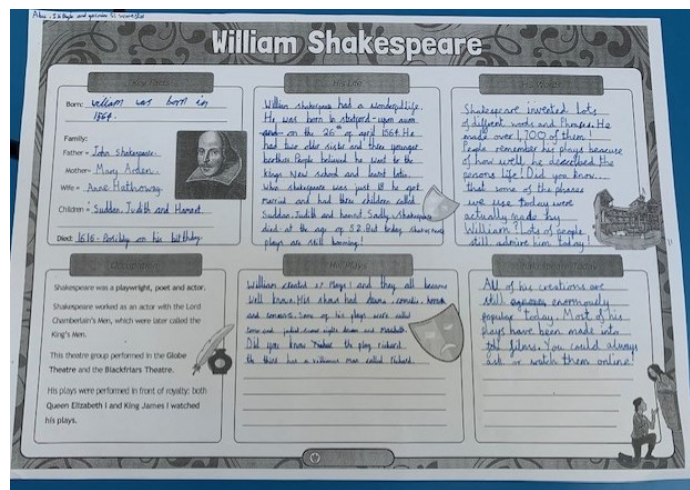 William Shakespeare
Key Facts
Born: William was born in
1564.
Family:
Father = John Shakespeare.
Mother = Mary Arden.
Wife = Anne Hathaway
Children = Suddan, Judith and Hamnet
Died: 1616. Possibly on his birthday.
His Life
William shakespeare had a wonderful life.
He was born in statperd-upon avon
on the 26th of april 1564. He
had two older sister and three younger
brothers. People believed he went to the
kings New school and learnt latin.
When shakespeare was just 18 he got
married and had three children called
Suddan, Judith and hamnet. Sadly, Shakespeare
died at the age of 52. But today shakespeares
plays are still
His Words
Shakespeare invented lots
of different words and Phrases. He
made over 1,700 of them!
People remember his plays beacuse
of how well he described the
persons life! Did you know...
that some of the phrases
we use today were
actually made by
William? Lots of people
still admire him today!
Shakespeare was a playwright, poet and actor.
Shakespeare worked as an actor with the Lord
Chamberlain's Men, which were later called the
King's Men.
This theatre group performed in the Globe
Theatre and the Blackfriars Theatre.
His plays were performed in front of royalty: both
Queen Elizabeth I and King James I watched
his plays.
His Plays
William created 37 Plays! and they all became
well known. His shows had drama, comedic, horror
and romance. Some of his plays were called
romeo and juliet, mid summer nights dream and Macbeth.
Did you know the play richard
the third has a villainous man called Richard.
All of his creations are
still enormously
popular today. Most of his
plays have been made into
films. You could always
ask or watch them online!